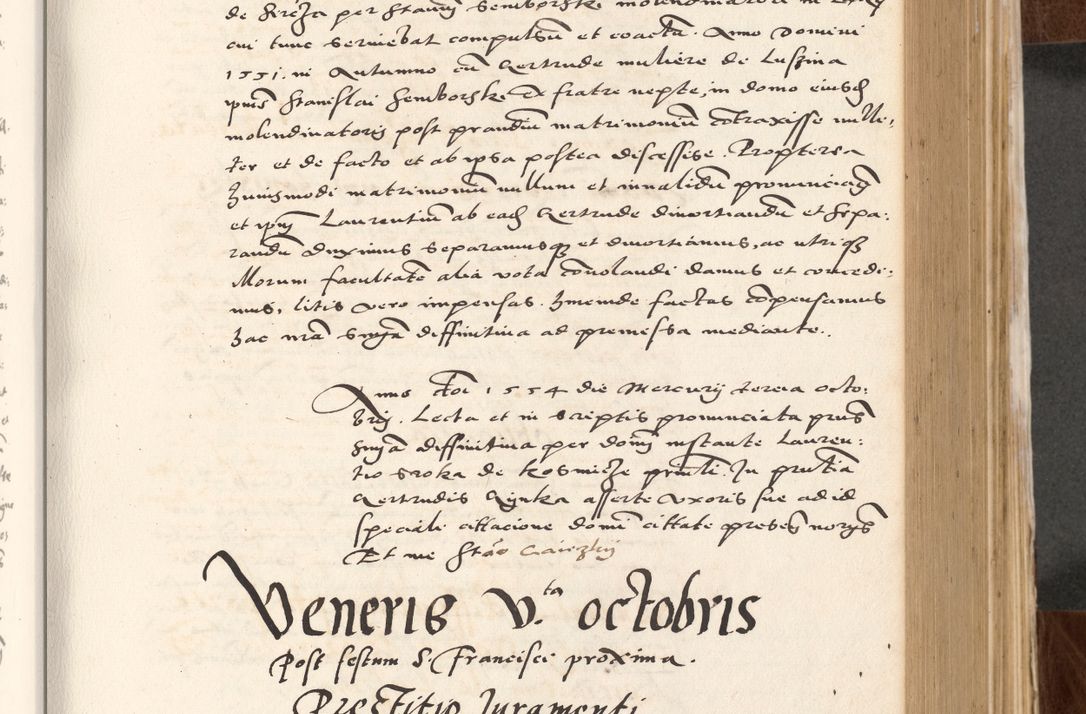 de Hreża per Stanm Semborski molendinatorem in
cui tunc serviebat compulsũ et coactã. Anno Domini
1551. in Autumno cũ Gertrude muliere de Luszina
ipius Stanislai Semborski ex fratre nepte, in domo eiusd
molendinatoris post prandiũ matrimoniũ cõtraxisse nulli,
ter et de facto et ab ipsa postea discessisse. Propterea
huiusmodi matrimoniũ nullum et invalidũ pronunciam
et ipm Laurentiũ ab eadẽ Gertrude divortiandũ et sepa:
randũ duximus separamusq et divortiamus, ac utriq
illorum facultatẽ alia vota cõvolandi damus et concedi:
mus, litis vero impensas hincinde factas cõpensamus
hac nrã sniam diffinitiva ad premissa mediante.
Anno Dni 1554 die Mercurij tercia octo:
bris. Lecta et in scriptis pronunciata prius
snia diffinitiva per dominũ instante Lauren:
tio Sroka de Kosmicze prnti. In prntia
Gertrudis asserte uxoris sue ad id
speciali citacione domi citate presen
Et me Stão
Veneris v.ta octobris
Post festum S. Francisci proxima.
Prestitio Iuramenti